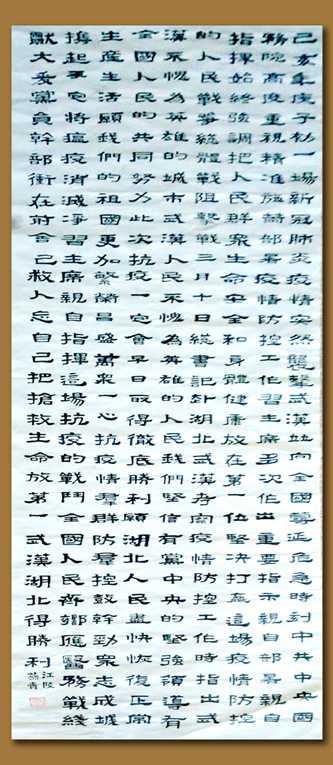 己亥年庚子初一場新冠肺炎疫情突然襲擊武漢並向全國蔓延危急時刻中共中央國
務院高度重視精準施策部署疫情防控工作習主席多次作出重要指示親自部署親自
指揮始終強調把人民群衆生命安全和身體健康放在第一位堅決打贏這場疫情防控
的人民戰爭總體戰阻擊戰三月十日總書記赴湖北武漢考察疫情防控工作時指出武
漢不愧為英雄的城市武漢人民不愧為英雄的人民我們堅信有黨中央的堅強領導有
全國人民的共同努力此次抗疫一定會早日取得徹底勝利願湖北人民盡快恢復正常
生產生活願我們的祖國更加繁榮昌盛萬衆一心抗疫情群防群控鼓幹勁衆志成城
起來定將瘟疫消滅淨習主席親自指揮這場抗疫的戰鬥全國人民齊響應醫務戰綫
獻大愛黨員幹部衝在前舍己救人忘自己把搶救生命放第一武漢湖北得勝利
江陵